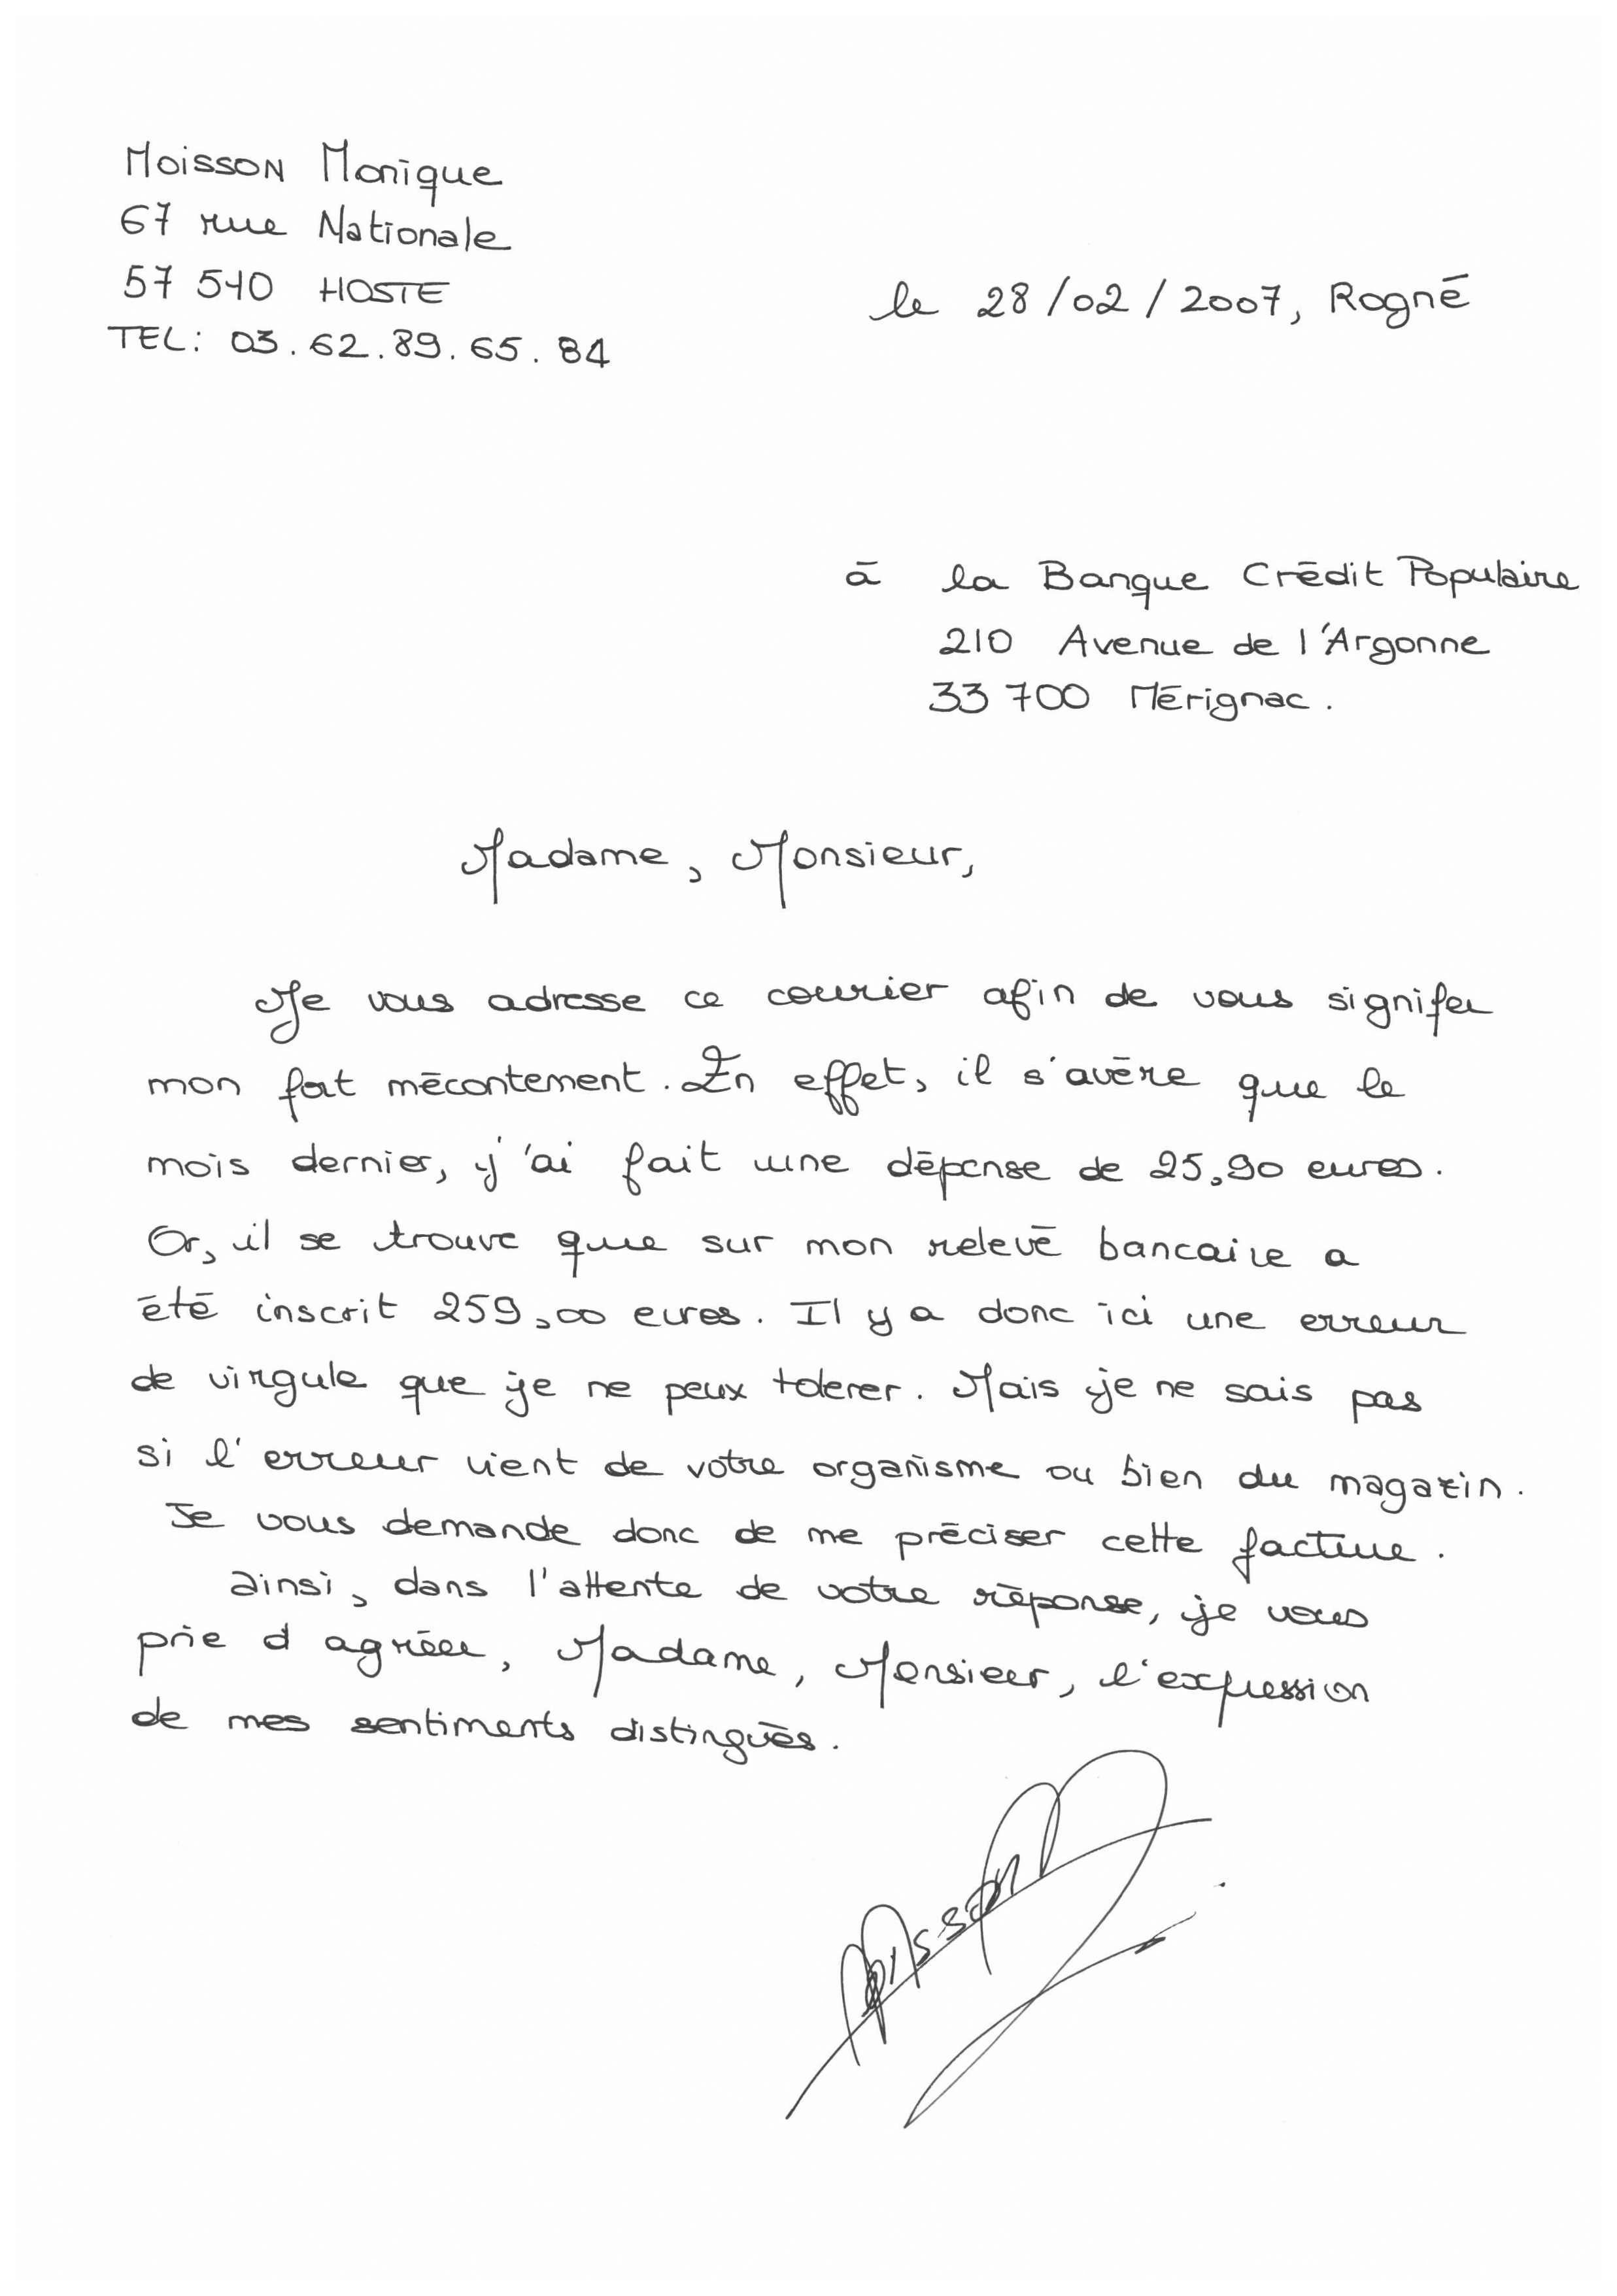 Moisson Monique
67 rue Nationale
57 510 HOSTE
TEL : 03.62.89.65.84
le 28/02/2007, Rogné
à la Banque Crédit Populaire
210 Avenue de l'Argonne
33 700 Mérignac.
Madame, Monsieur,
Je vous adresse ce courrier afin de vous signifer
mon fort mécontement. En effet, il s'avère que le
mois dernier, j'ai fait une dépense de 25,90 euros.
Or, il se trouve que sur mon relevé bancaire a
été inscrit 259,00 euros. Il y a donc ici une erreur
de virgule que je ne peux tolerer. Mais je ne sais pas
si l'erreur vient de votre organisme ou bien du magazin.
Je vous demande donc de me préciser cette facture.
ainsi, dans l'attente de votre réponse, je vous
prie d agréer, Madame, Monsieur, l'expression
de mes sentiments distingués.
Moisson